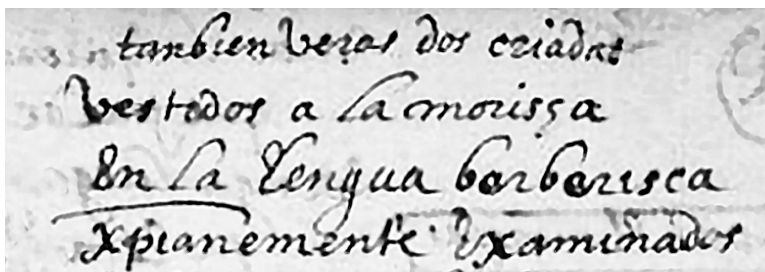 tanbien veras dos criadas
vestidos a la morisça
En la lengua berberisca
xpianemente examinados